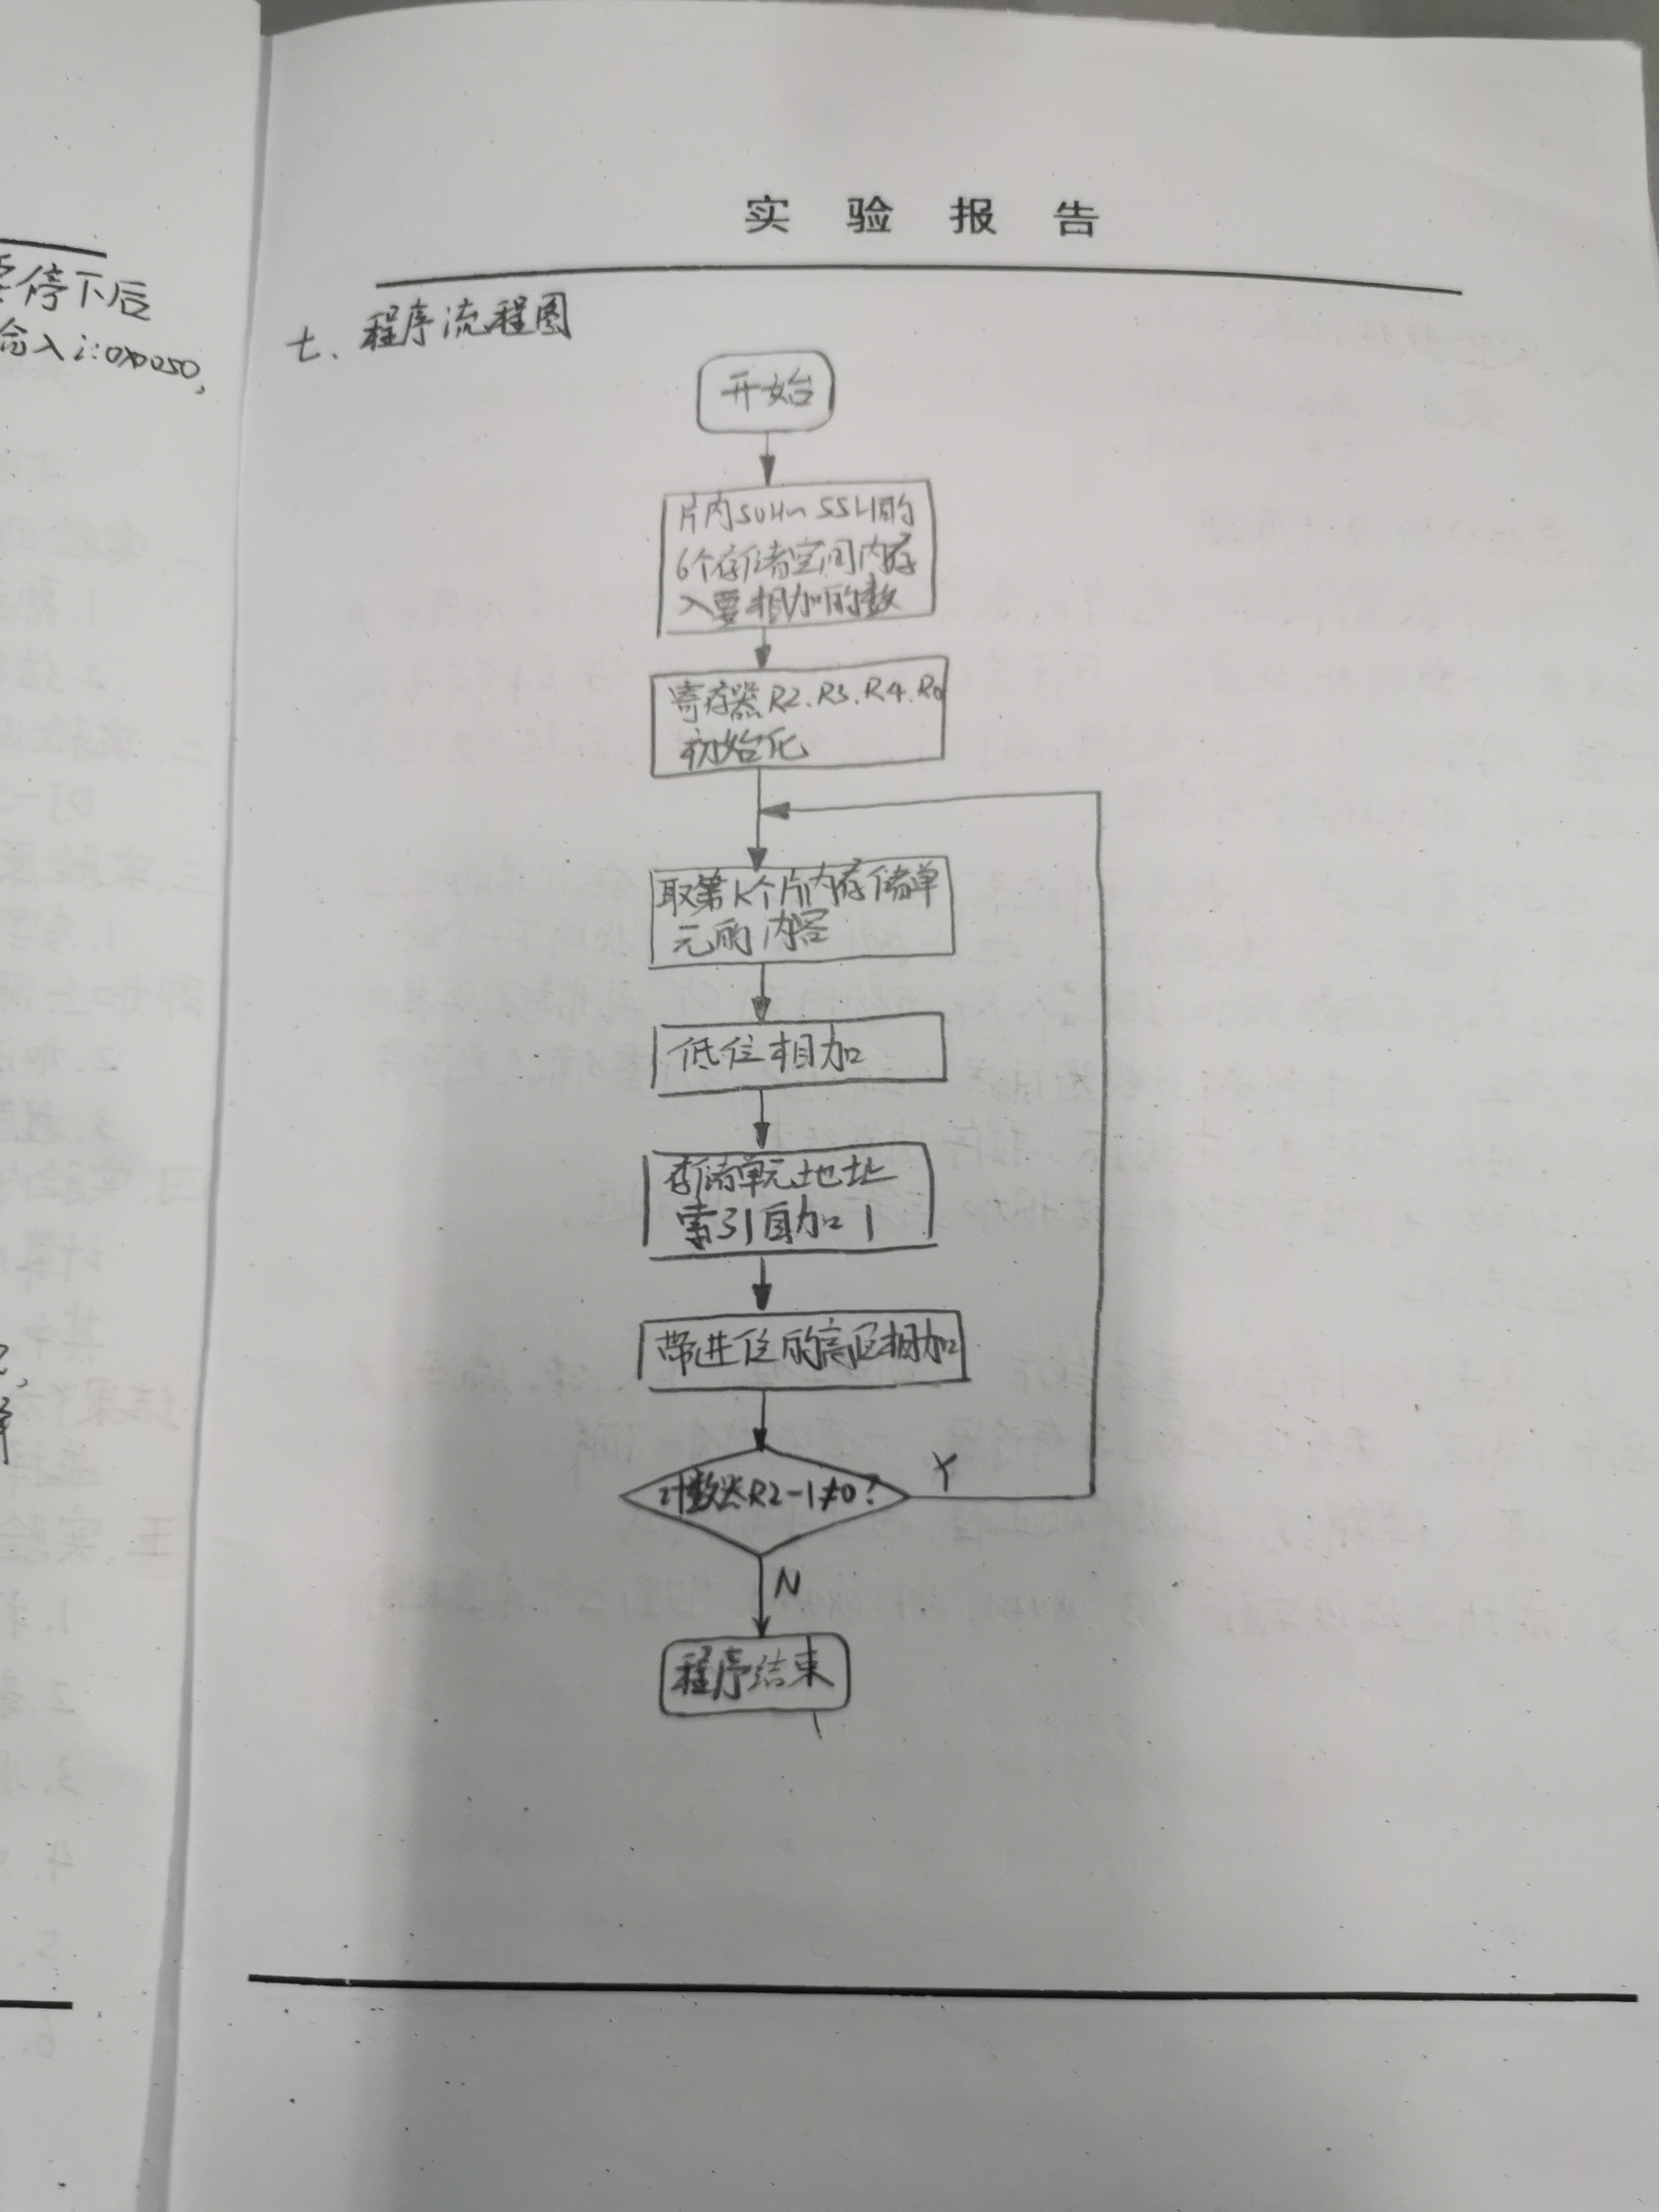 实验报告
停下后
入i:0x0050,
七、程序流程图
开始
片内50H~55H的
6个存储空间内存
入要相加的数
寄存器R2、R3、R4、R0
初始化
取第K个片内存储单
元的内容
低位相加
存储单元地址
索引自加1
带进位的高位相加
计数器R2-1≠0?
Y
N
程序结束